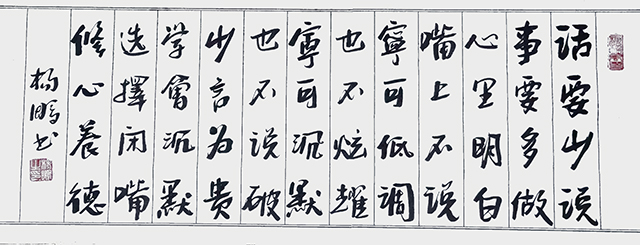 话要少说
事要多做
心里明白
嘴上不说
寧可低调
也不炫耀
寧可沉默
也不说破
少言为贵
学會沉默
选擇闭嘴
修心养德
杨鹏书